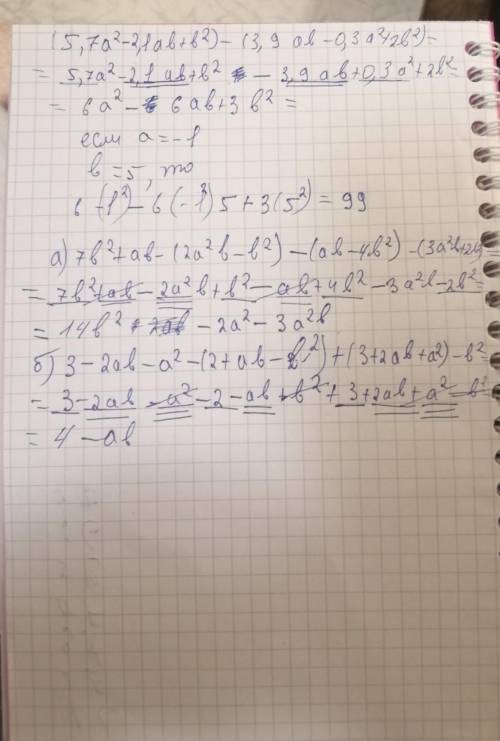 (5,7a²-2,1ab+b²)-(3,9ab-0,3a²+2b²)=
= 5,7a²-2,1ab+b² - 3,9ab+0,3a²+2b²=
= 6a²- 6ab+3b² =
если a=-1
b=5, то
6(-1²)-6(-1)5+3(5²)=99
а) 7b²+ab-(2a²b-b²)-(ab-4b²)-(3a²b+2b
= 7b²+ab-2a²b+b²-ab+4b²-3a²b-2b²=
= 14b² -2a²-3a²b
б) 3-2ab-a²-(2+ab-b²)+(3+2ab+a²)-b²=
= 3-2ab-a²-2-ab+b²+3+2ab+a²-b²
= 4-ab